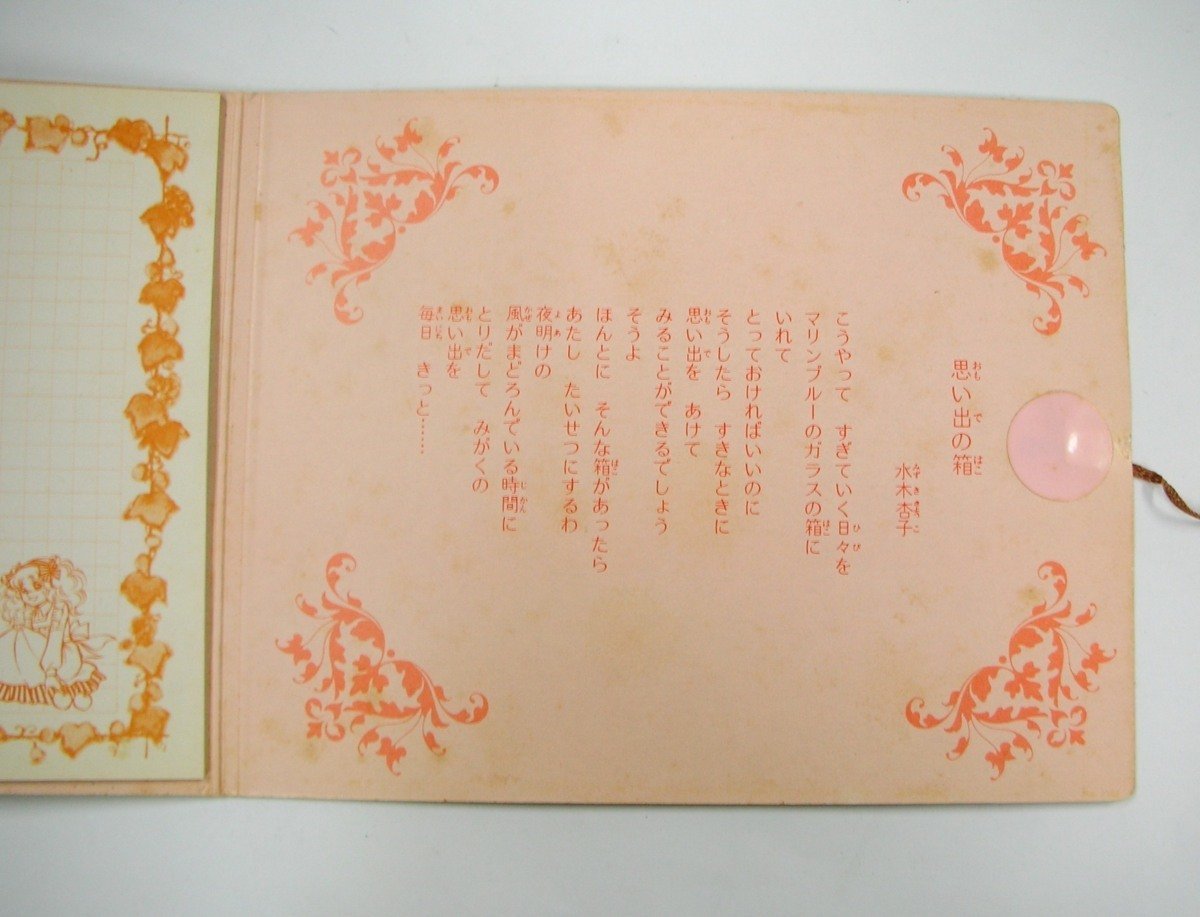 思い出の箱
水木杏子
こうやって すぎていく日々を
マリンブルーのガラスの箱に
いれて
とっておければいいのに
そうしたら すきなときに
思い出を あけて
みることができるでしょう
そうよ
ほんとに そんな箱があったら
あたし たいせつにするわ
夜明けの
風がまどろんでいる時間に
とりだして みがくの
思い出を
毎日 きっと……